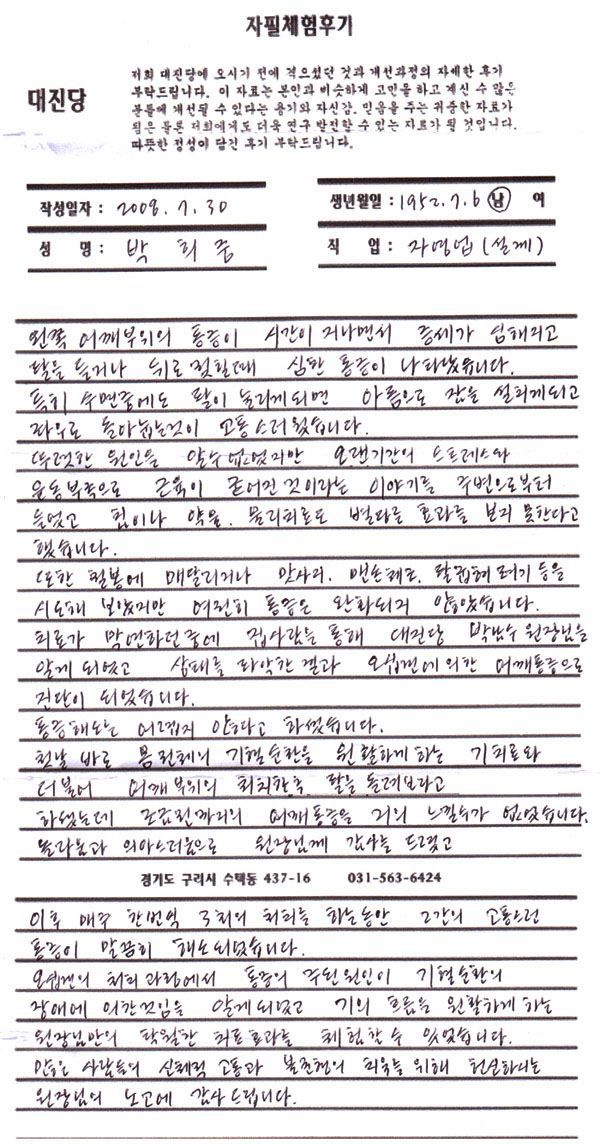 자필체험후기
대진당
저희 대진당에 오시기 전에 겪으셨던 것과 개선과정의 자세한 후기
부탁드립니다. 이 자료는 본인과 비슷하게 고민을 하고 계신 수 많은
분들에 개선될 수 있다는 용기와 자신감, 믿음을 주는 귀중한 자료가
됨은 물론 저희에게도 더욱 연구 발전할 수 있는 자료가 될 것입니다.
따뜻한 정성이 담긴 후기 부탁드립니다.
작성일자 : 2008. 7. 30
생년월일 : 1952. 7. 6 남 여
성 명 : 박 희 중
직 업 : 자영업 (설계)
왼쪽 어깨부위의 통증이 시간이 지나면서 증세가 심해지고
팔을 들거나 뒤로 젖힐때 심한 통증이 나타났습니다.
특히 수면중에도 팔이 눌리게되면 아픔으로 잠을 설치게되고
좌우로 돌아눕는것이 고통스러웠습니다.
뚜렷한 원인은 알수 없었지만 오랜기간의 스트레스와
운동부족으로 근육이 굳어진 것이라는 이야기를 주변으로부터
들었고 침이나 약을, 물리치료도 별다른 효과를 보지 못한다고
했습니다.
또한 철봉에 매달리거나 맛사지, 맨손체조, 팔굽혀 펴기 등을
시도해 보았지만 여전히 통증은 완화되지 않았습니다.
치료가 막연하던 중에 집사람을 통해 대진당 박남수 원장님을
알게 되었고 상태를 파악한 결과 오십견에 의한 어깨통증으로
진단이 되었습니다.
통증해소는 어렵지 않다고 하셨습니다.
첫날 바로 몸전체의 기혈순환을 원활하게 하는 기치료와
더불어 어깨부위의 처치한후 팔을 돌려보라고
하셨는데 조금전까지의 어깨통증을 거의 느낄수가 없었습니다.
놀라움과 의아스러움으로 원장님께 감사를 드렸고
경기도 구리시 수택동 437-16 031-563-6424
이후 매주 한번씩 3차의 처치를 하는동안 그간의 고통스런
통증이 말끔히 해소되었습니다.
오십견의 처치과정에서 통증의 주된원인이 기혈순환의
장애에 의한것임을 알게되었고 기의 흐름을 원활하게 하는
원장님만의 탁월한 치료효과를 체험할 수 있었습니다.
많은 사람들의 신체적 고통과 불균형의 치유를 위해 헌신하시는
원장님의 노고에 감사드립니다.